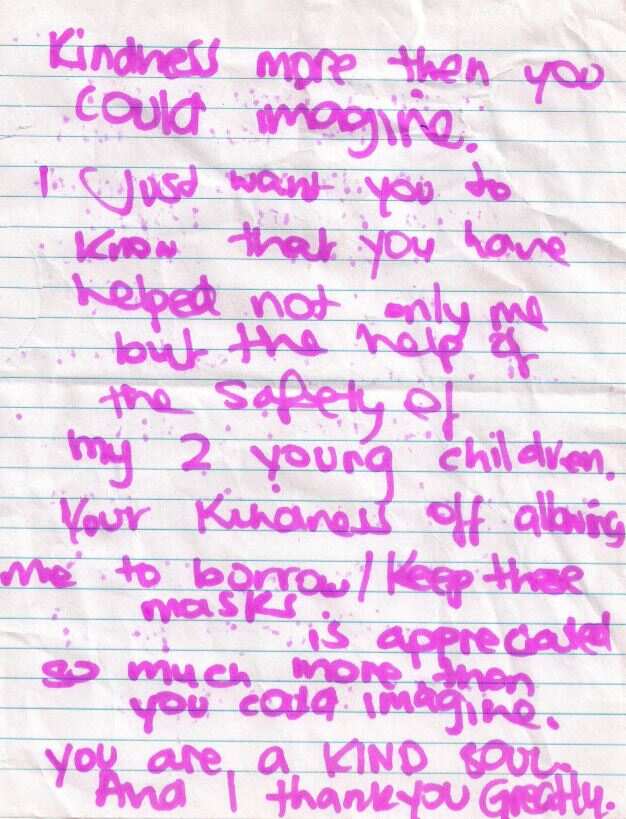 Kindness more then you
could imagine.
I Just want you to
know that you have
helped not only me
but the help of
the Safety of
my 2 young children.
Your Kindness off allowing
me to borrow/Keep these
masks.
is appreciated
so much more then
you could imagine.
you are a KIND SOUL.
And I thankyou Greatly.